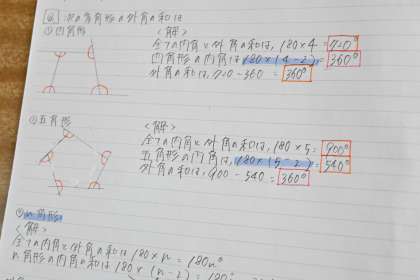 例 次の多角形の外角の和は
①四角形
<解>
全ての内角と外角の和は、180×4=720°
四角形の内角は180×(4-2)=360°
外角の和は、720-360=360°
②五角形
<解>
全ての内角と外角の和は、180×5=900°
五角形の内角は、180×(5-2)=540°
外角の和は、900-540=360°
③n角形
<解>
全ての内角と外角の和は180×n=180n°
n角形の内角の和は180×(n-2)=180